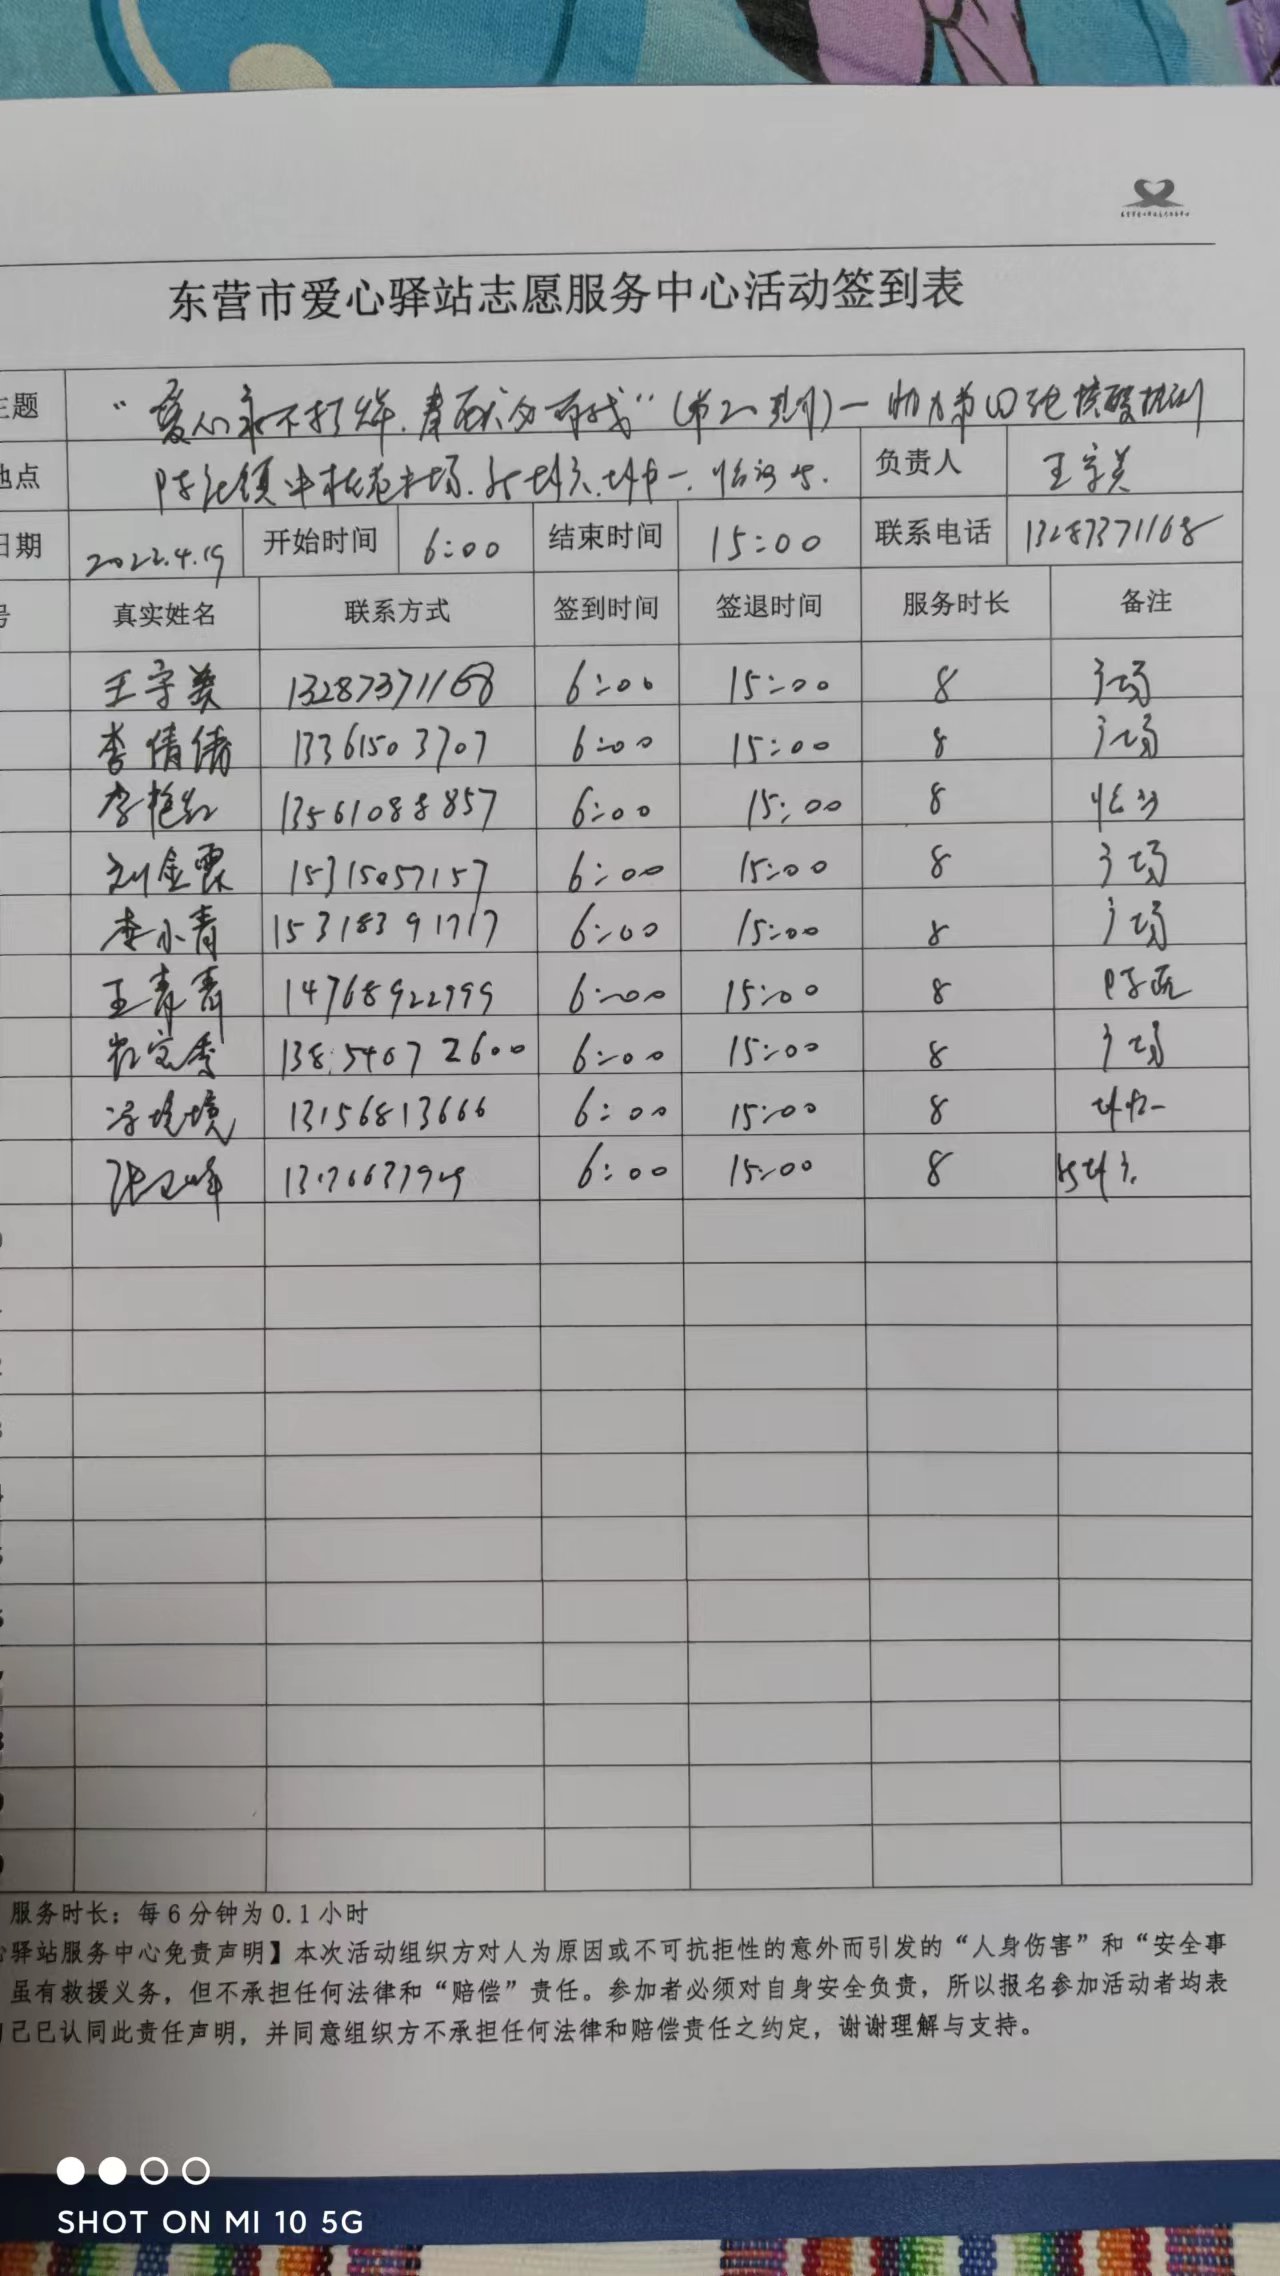 东营市爱心驿站志愿服务中心活动签到表
主题 “爱心永不打烊.春 有我”(第二 期)—助力第四轮核酸检测
地点 广场. 负责人 王字美
日期 2022.4.19 开始时间 6:00 结束时间 15:00 联系电话 13287371168
号 真实姓名 联系方式 签到时间 签退时间 服务时长 备注
王字美 13287371168 6:00 15:00 8 广场
李倩倩 13361503707 6:00 15:00 8 广场
李艳红 13561088857 6:00 15:00 8
刘金霞 15315057157 6:00 15:00 8 广场
李小青 15318391717 6:00 15:00 8 广场
王青青 14768922999 6:00 15:00 8
13854672600 6:00 15:00 8 广场
13156813666 6:00 15:00 8
张 峰 6:00 15:00 8
服务时长：每6分钟为0.1小时
心驿站服务中心免责声明】本次活动组织方对人为原因或不可抗拒性的意外而引发的“人身伤害”和“安全事
虽有救援义务，但不承担任何法律和“赔偿”责任。参加者必须对自身安全负责，所以报名参加活动者均表
己已认同此责任声明，并同意组织方不承担任何法律和赔偿责任之约定，谢谢理解与支持。
SHOT ON MI 10 5G